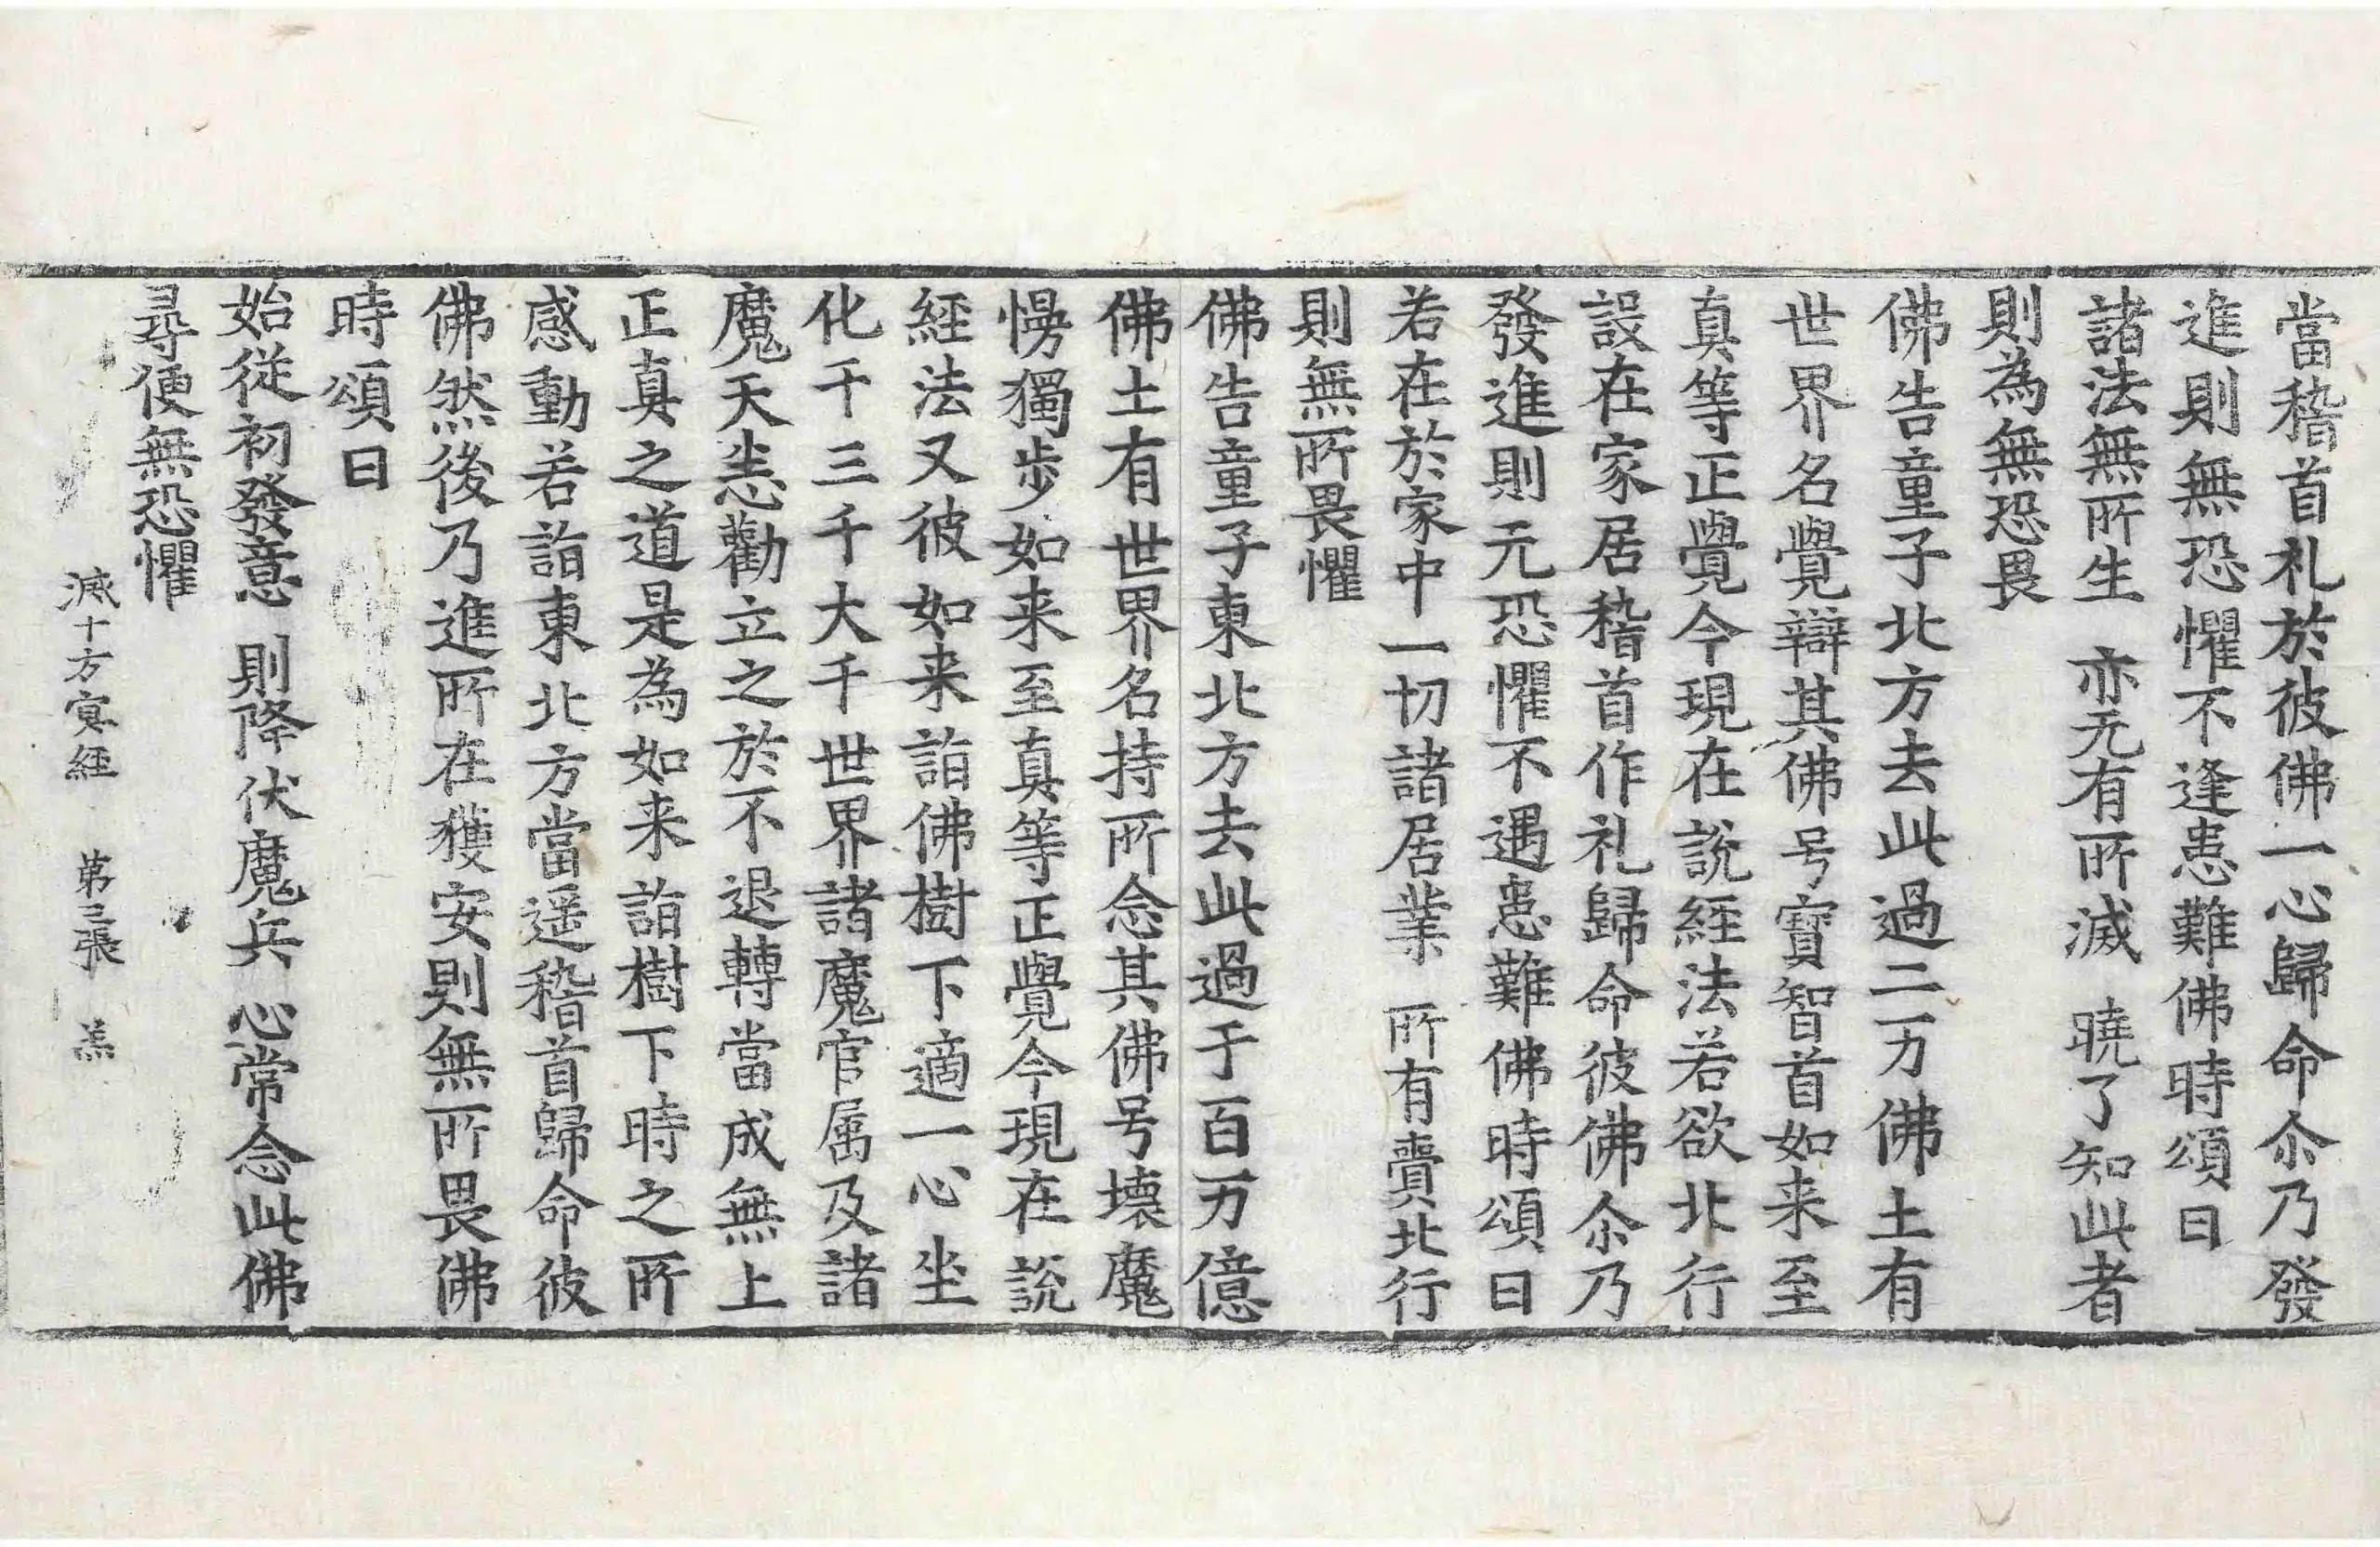 當稽首礼於彼佛一心歸命尒乃發
進則無恐懼不逢患難佛時頌曰
諸法無所生 亦无有所滅 曉了知此者
則為無恐畏
佛告童子北方去此過二万佛土有
世界名覺辯其佛号寶智首如来至
真等正覺今現在說経法若欲北行
設在家居稽首作礼歸命彼佛尒乃
發進則无恐懼不遇患難佛時頌曰
若在於家中一切諸居業 所有賣北行
則無所畏懼
佛告童子東北方去此過于百万億
佛土有世界名持所念其佛号壊魔
慢獨步如来至真等正覺今現在說
経法又彼如来詣佛樹下適一心坐
化千三千大千世界諸魔官属及諸
魔天悉勸立之於不退轉當成無上
正真之道是為如来詣樹下時之所
感動若詣東北方當遥稽首歸命彼
佛然後乃進所在獲安則無所畏佛
時頌曰
始從初發意 則降伏魔兵 心常念此佛
尋便無恐懼
滅十方冥経 苐三張 羔